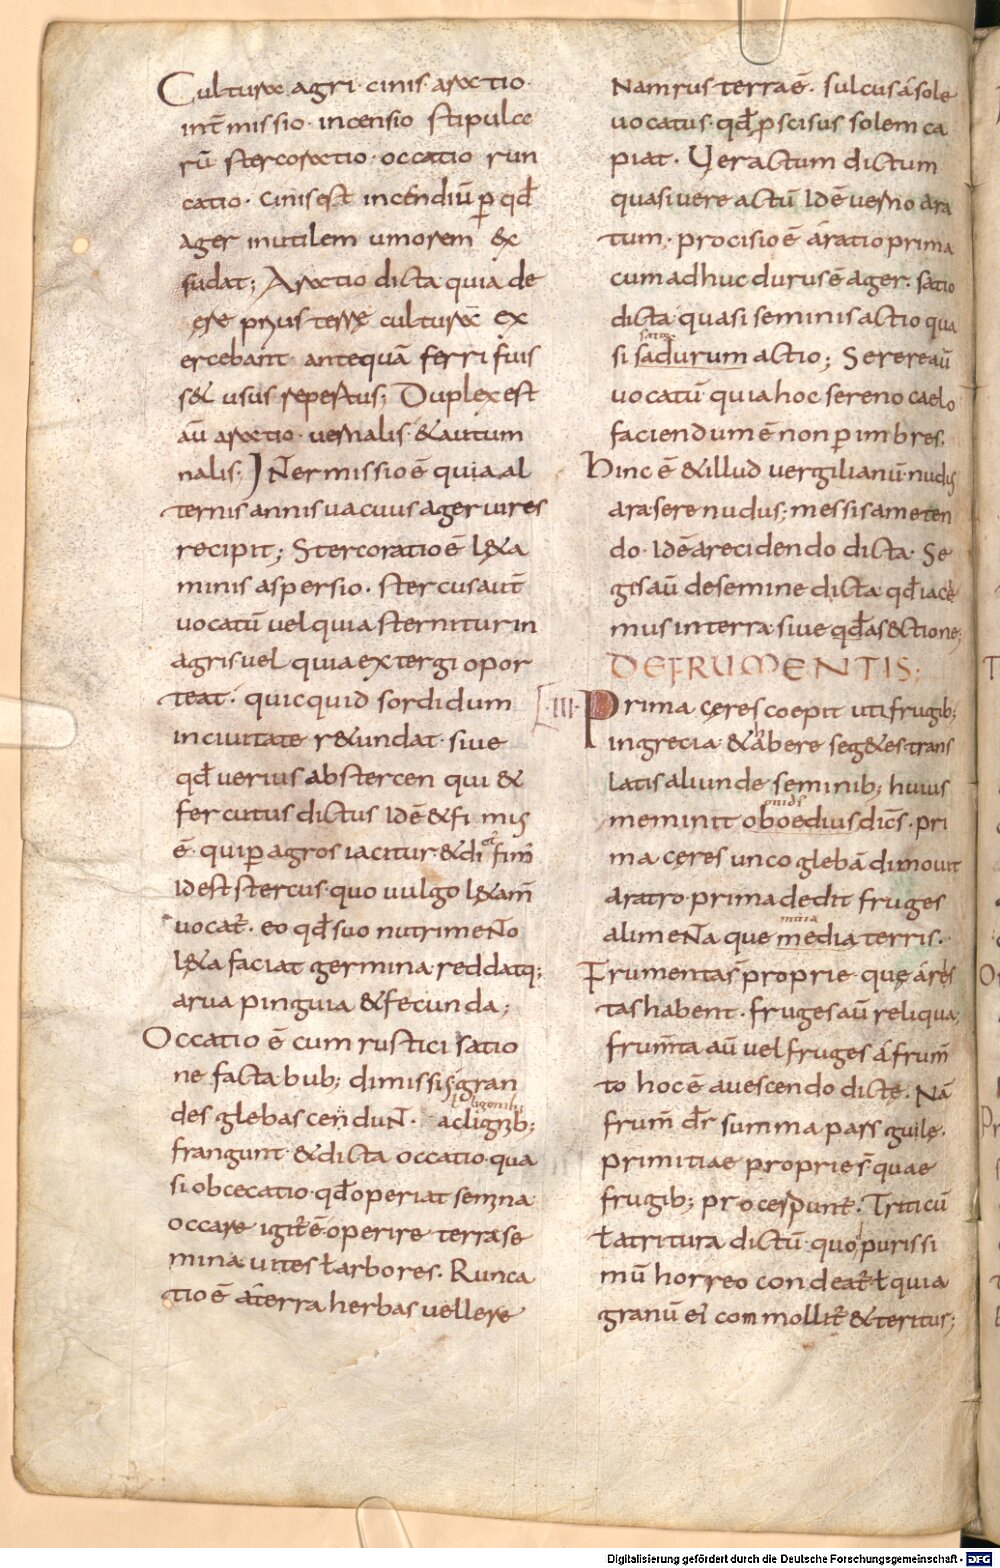 Culturæ agri· cinis· aratio·
int̄missio· incensio stipulæ
rū stercoratio· occatio run
catio· cinis est incendiū ꝑ qđ
ager inutilem umorem &x
sudat; Aratio dicta quia de
ęre prius terrę culturæ ex
ercebant· antequā ferri fuis
s& usus repertus; Duplex est
aū aratio· uernalis· &autum
nalis; INtermissio ē quia al
ternis annis uacuus ager uires
recipit; Stercoratio ē l&a
minis aspersio· stercus aut̄
uocatū uel quia sternitur in
agris uel quia extergi opor
teat· quicquid sordidum
in ciuitate r&undat· siue
qđ uerius abstercen qui &
fercutus dictus Idē & fi mis
ē· qui ꝑ agros iacitur· & di fim̄
Idest stercus quo uulgo l&am̄
uocat̄· eo qđ suo nutrimeNto
l&a faciat germina· reddatq;
arua pinguia & fecunda;
Occatio ē cum rustici satio
ne facta bub; dimissis gran
des glebas cenduNt· ac ligonib;
frangunt· & dicta occatio qua
si obcecatio· qđ operiat semina
occare igit̄ ē operire terra se
mina uites ł arbores· Runca
tio ē a terra herbas uellere
Nam rus terra ē· sulcus á sole
uocatus· qđ ꝓscisus solem ca
piat· Ueractum dictum
quasi uere actū Idē uerno ara
tum· procisio ē áratio prima
cum adhuc durus ē ager· satio
dicta quasi seminis actio qua
si sadurum actio; Serere aū
uocatū quia hoc sereno caelo
faciendum ē non ꝑ imbres·
Hinc ē & illud uergilianū· nudus
ara sere nudus; messis ameten
do· Idē arecidendo dicta· Se
gis aū de semine dicta· qđ iace
mus in terra· siue qđ as&ctione;
DE FRUMENTIS;
III· Prima cęres coepit uti frugib;
in grecia· & ábere seg&es trans
latis aliunde seminib; huius
ouids
meminit oboedius dic̄s· pri
ma cęres unco glebā dimouit
aratro· prima dedit fruges
alimeNta que media terris·
Frumenta s̄ proprie· que áris
tas habent· fruges aū reliqua;
frum̄ta aū uel fruges á frum̄
to hoc ē auescendo dictę· Nā
frum̄ dr̄ summa pars gulę·
primitiae proprie s̄ quae
frugib; Triticū
ł atritura dictū· quo purissi
mū horreo condeat̄ ł quia
granū ei commollit̄ & teritus;